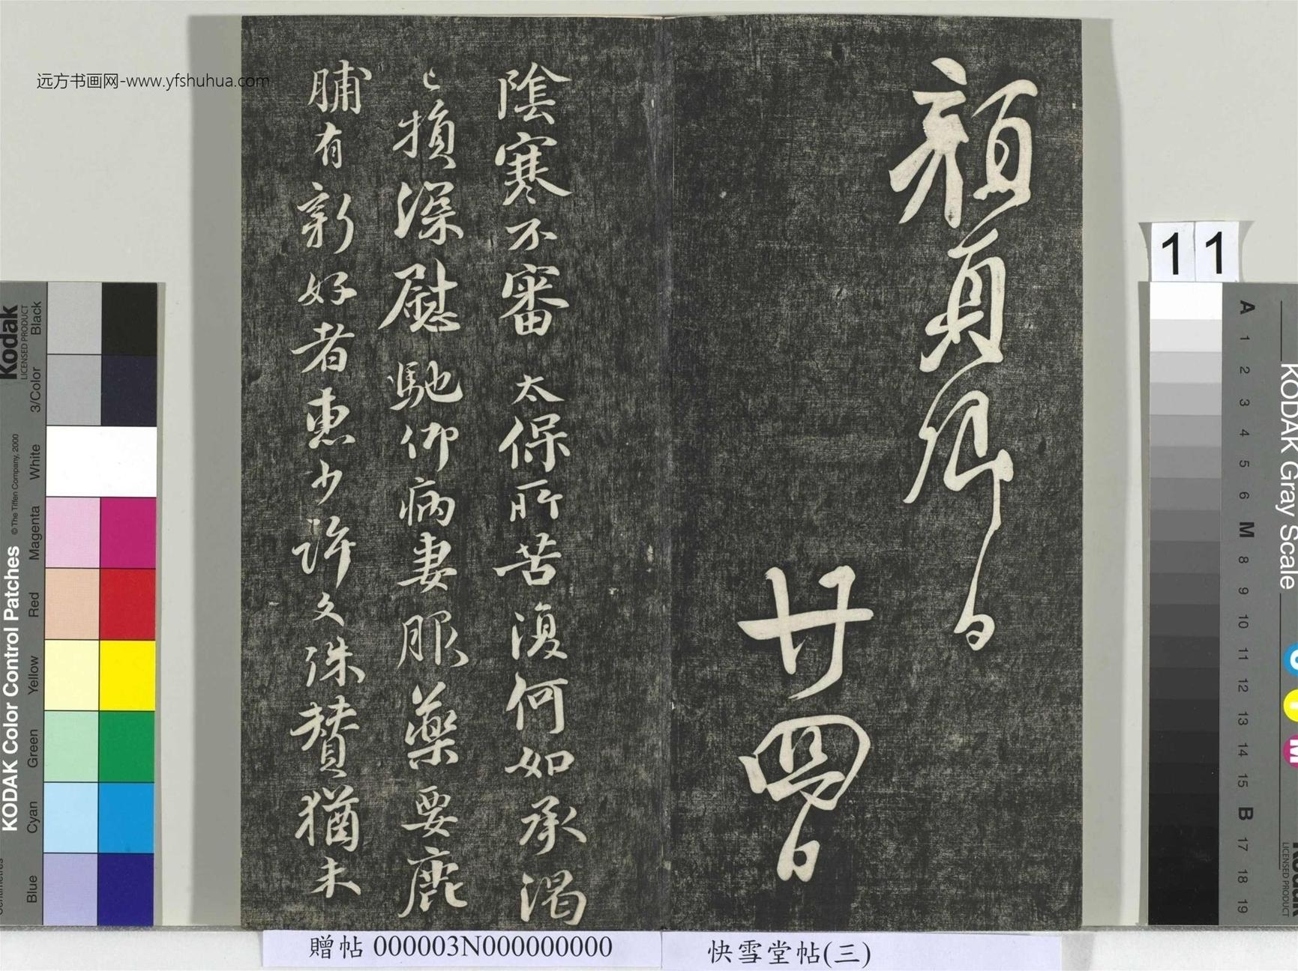 远方书画网-www.yfshuhua.com
顏真卿白
廿四日
陰寒不審太保所苦復何如承渴
已損深慰馳仰病妻服藥要鹿
脯有新好者惠少許欠珠贊猶未
11
贈帖 000003N000000000
快雪堂帖(三)
Kodak
LICENSED PRODUCT
KODAK Color Control Patches
© The Tiffen Company, 2000
Blue
Cyan
Green
Yellow
Red
Magenta
White
3/Color
Black
KODAK Gray Scale
A 1 2 3 4 5 6 M 8 9 10 11 12 13 14 15 B 17 18 19
C
Y
M